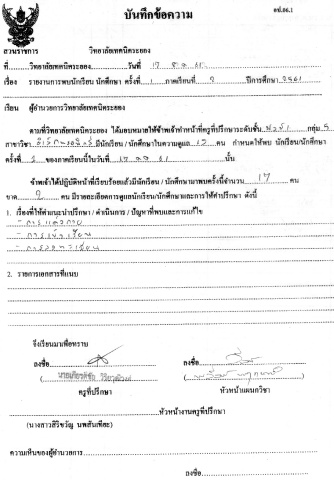 อป.อย.1
บันทึกข้อความ
ส่วนราชการ วิทยาลัยเทคนิคระยอง
ที่ วิทยาลัยเทคนิคระยอง วันที่ 17
เรื่อง รายงานการพบนักเรียน นักศึกษา ครั้งที่ 1 ภาคเรียนที่ 2 ปีการศึกษา 2561
เรียน ผู้อำนวยการวิทยาลัยเทคนิคระยอง
ตามที่วิทยาลัยเทคนิคระยอง ได้มอบหมายให้ข้าพเจ้าทำหน้าที่ครูที่ปรึกษาระดับชั้น กลุ่ม 5
สาขาวิชา มีนักเรียน / นักศึกษาในความดูแล คน กำหนดให้พบ นักเรียน/นักศึกษา
ครั้งที่ ของภาคเรียนนี้ในวันที่ นั้น
ข้าพเจ้าได้ปฏิบัติหน้าที่เรียบร้อยแล้วมีนักเรียน / นักศึกษามาพบครั้งนี้จำนวน 17 คน
ขาด 2 คน มีรายละเอียดการดูแลนักเรียน/นักศึกษาและการให้คำปรึกษา ดังนี้
1. เรื่องที่ให้คำแนะนำปรึกษา / ดำเนินการ / ปัญหาที่พบและการแก้ไข
- การแต่งกาย
- การเข้าเรียน
2. รายการเอกสารที่แนบ
จึงเรียนมาเพื่อทราบ
ลงชื่อ ลงชื่อ
ครูที่ปรึกษา หัวหน้าแผนกวิชา
หัวหน้างานครูที่ปรึกษา
(นางสาวสิริขวัญ นพสันเทียะ)
ความเห็นของผู้อำนวยการ
ลงชื่อ